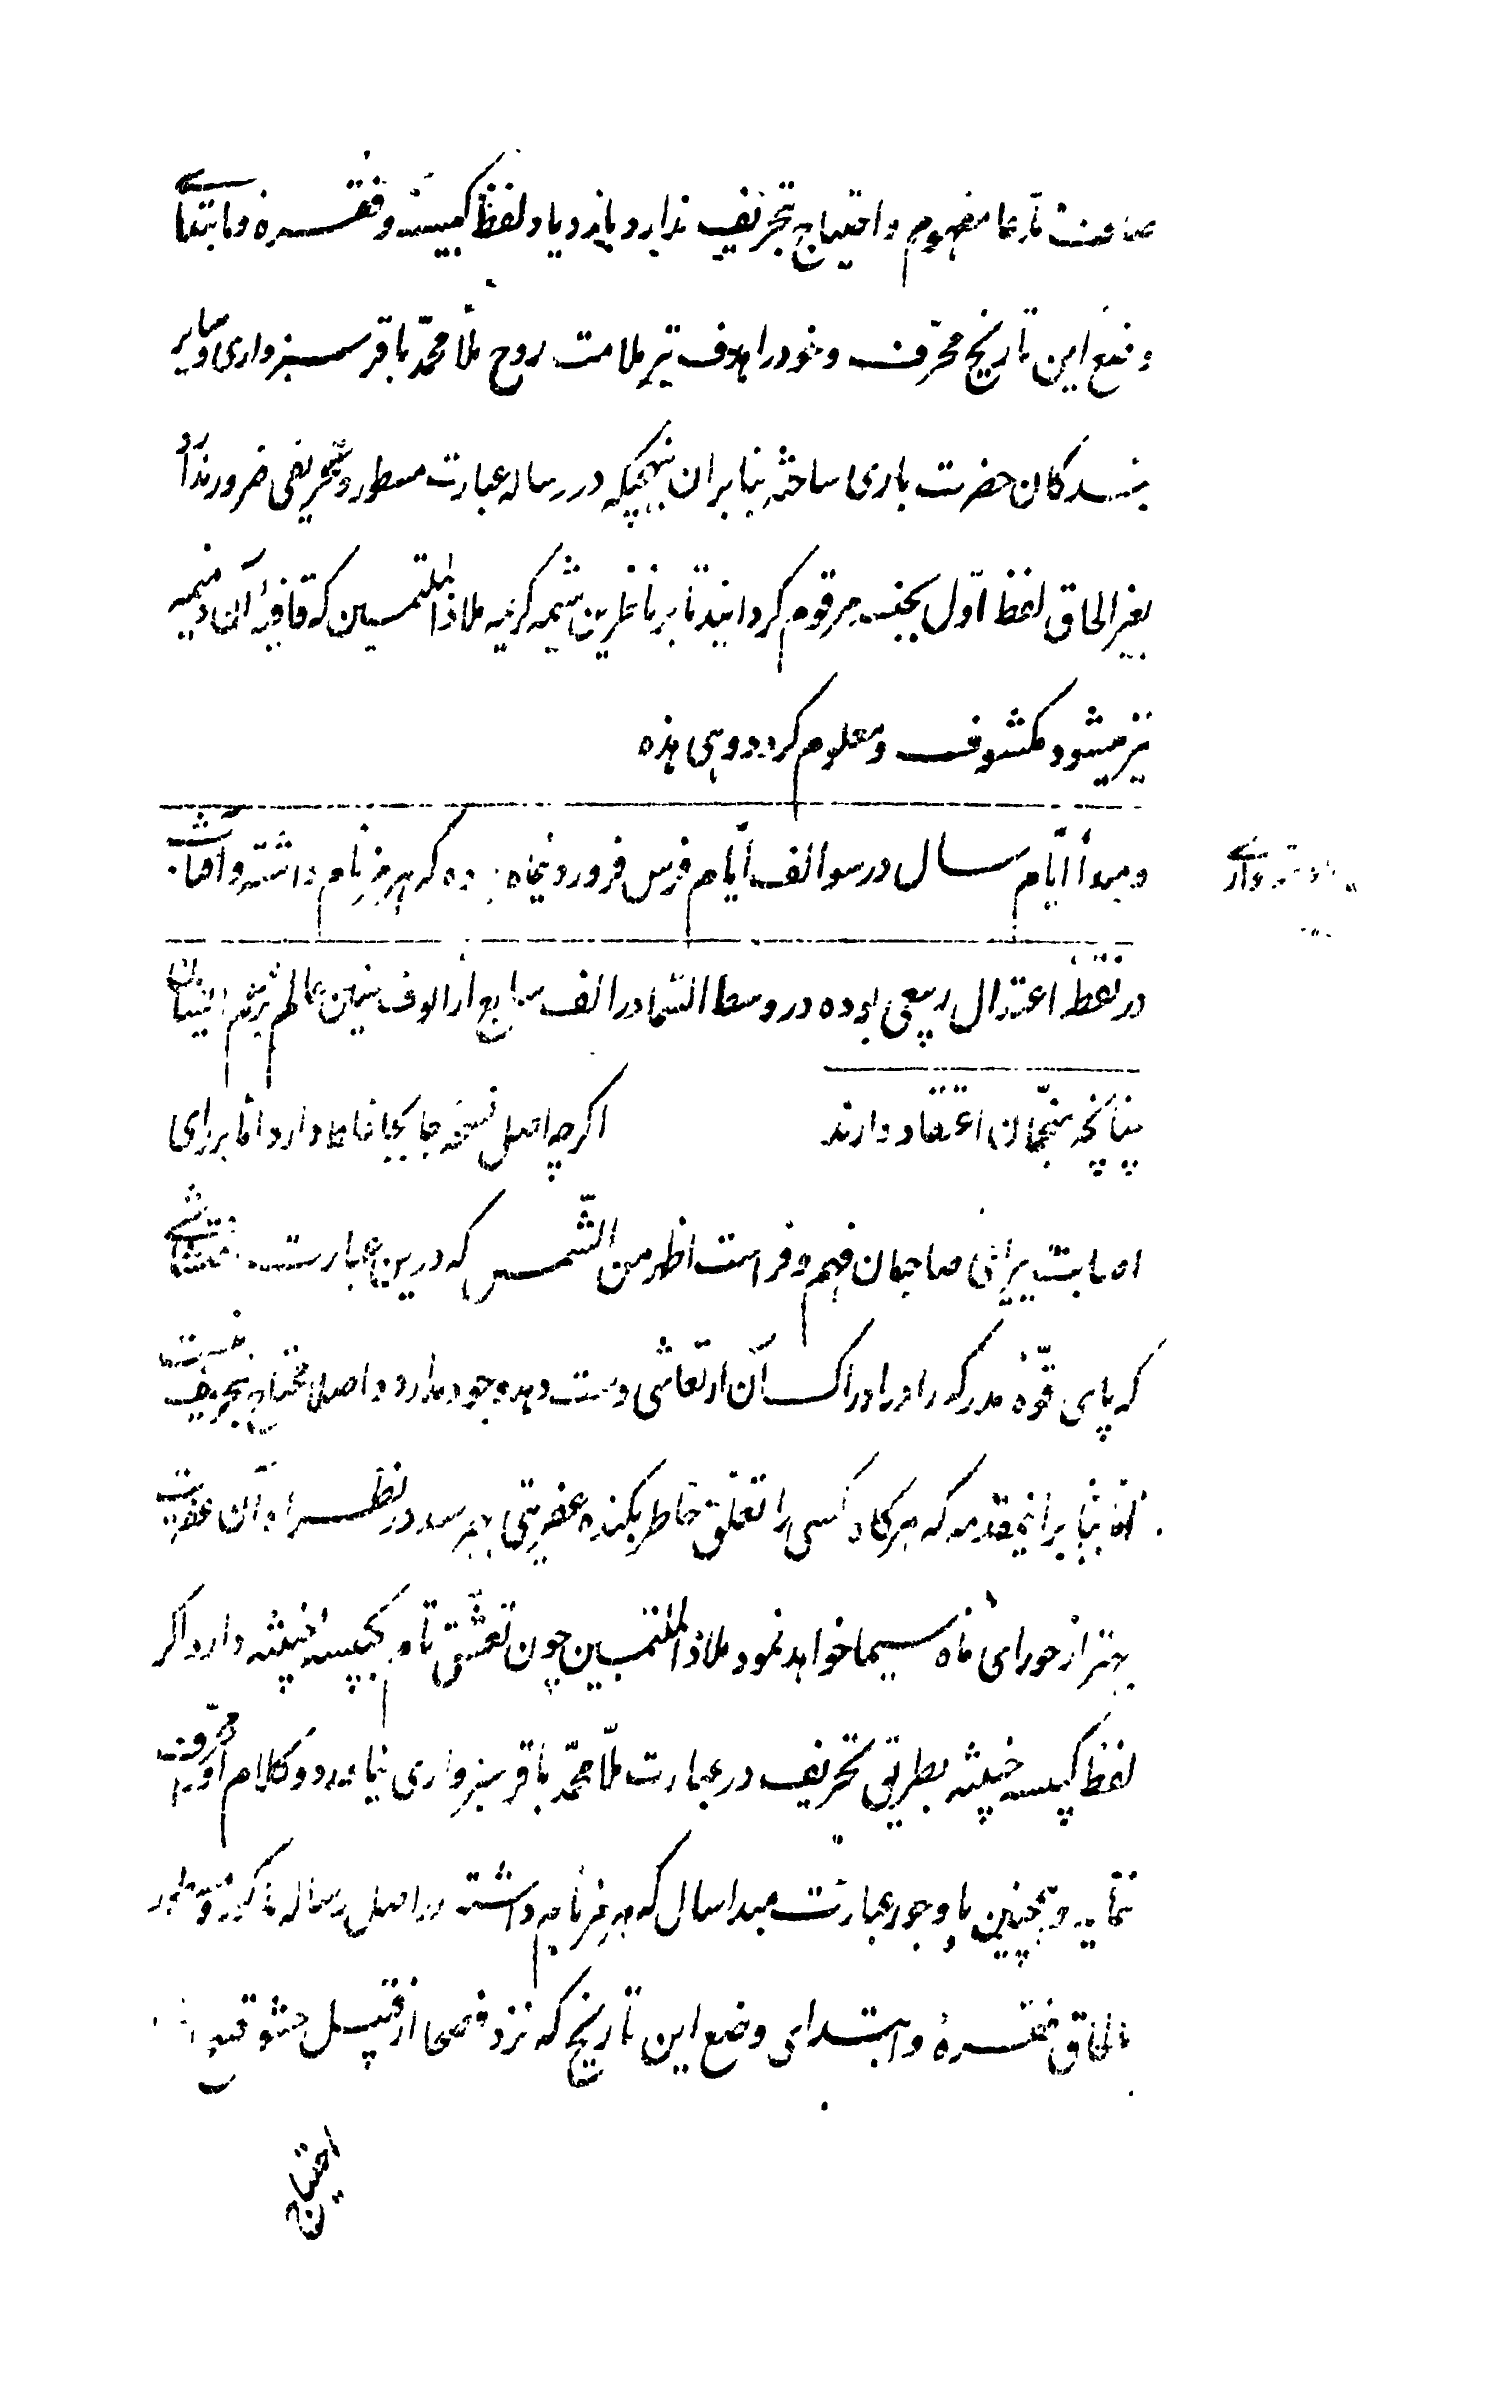 مدعا مفهوم و احتیاج بتحریف ندارد بازدیاد لفظ کبیسه و فقره و ابتدای
وضع این تاریخ محرف و خود را هدف تیر ملامت روح ملا محمد باقر سبزواری و سایر
بندکان حضرت باری ساخته بنابران بنهجیکه در رساله عبارت مسطور و بتحریفی ضرور ندارد
بغیر الحاق لفظ اول بجنسه مرقوم کردانید تا بر ناظرین شیمه کریمه ملاذ الملتمسین که قافیه آن ذمیمه
نیز میشود مکشوف و معلوم کردد و هی هذه
و مبدأ ایام سال در سوالف ایام فرس فروردینماه بوده که هرمز نام داشته و آفتاب
در نقطه اعتدال ربیعی بوده در وسط السما در الف سابع از الوف سنین عالم بزعم ایشان
چنانچه منجمان اعتقاد دارند اکرچه اصل نسخه جا بجا خطا دارد اما بر رای
اصابت پیرای صاحبان فهم و فراست اظهر من الشمس که درین عبارت
که پای قوه مدرکه را در ادراک آن ارتعاشی دست دهد وجود ندارد و اصلا محتاج بتحریف نیست
اما بنا بر اینمقدمه که هرکاه کسی را تعلق خاطر بکنده عفریتی بهم رسد در نظر او آن عفریت
بهتر از حورای ماه سیما خواهد نمود ملاذ الملتمسین چون تعشق تام بکپیسه خپیشه دارد اکر
لفظ کپیسه خپیشه بطریق تحریف در عبارت ملا محمد باقر سبزواری نیاورد و کلام او را محرف
ننماید و همچنین با وجود عبارت مبدا سال که هرمز نام داشته در اصل رساله مذکور و مسطور
بالحاق فقره و ابتدای وضع این تاریخ که نزد فصحا از قبیل حشو قبیح
احتیاج